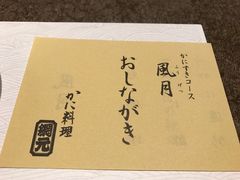 かにすきコース
風月
ふうげつ
おしながき
かに料理
網元